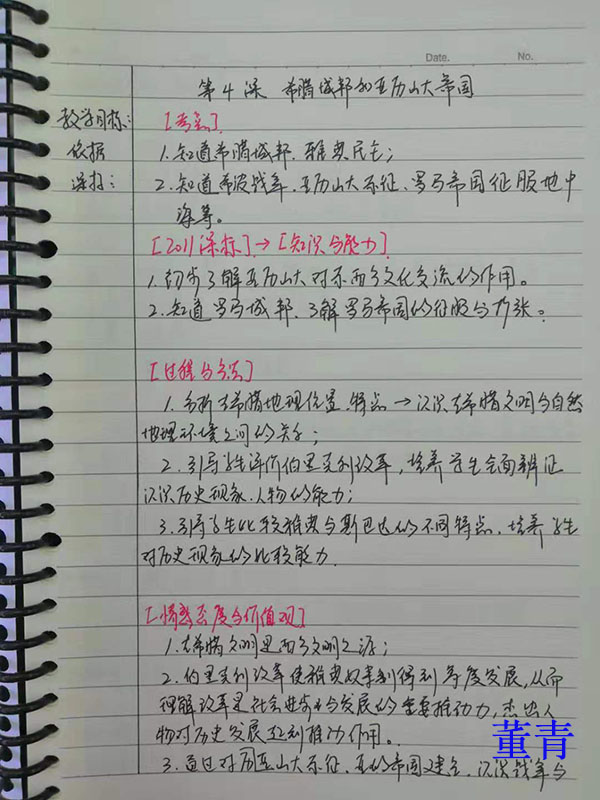 Date.
No.
第4课 希腊城邦和亚历山大帝国
教学目标: [考点]
依据 1.知道希腊城邦、雅典民主;
2.知道希波战争、亚历山大东征、罗马帝国征服地中
海等。
[2011课标]→[知识与能力]
1.初步了解亚历山大对东西方文化交流的作用。
2.知道罗马城邦、了解罗马帝国的征服与扩张。
[过程与方法]
1.分析古希腊地理位置、特点→认识古希腊文明与自然
地理环境之间的关系;
2.引导学生评价伯里克利改革,培养学生全面辨证
认识历史现象、人物的能力;
3.引导学生比较雅典与斯巴达的不同特点,培养学生
对历史现象的比较能力.
[情感态度与价值观]
1.古希腊文明是西方文明之源;
2.伯里克利改革使雅典奴隶制得到 度发展,从而
理解改革是社会进步与发展的重要推动力,杰出人
物对历史发展起到推动作用。
3.通过对 亚山大东征、 帝国建立,认识战争与
董青